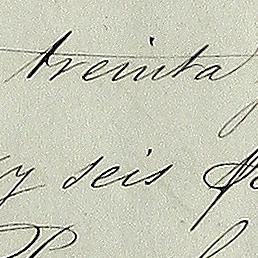 treinta
y seis